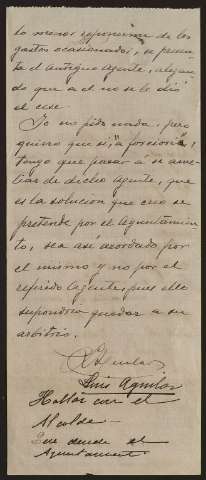 lo menos reponerme de los
gastos ocasionados, se presen-
ta el Antiguo Agente, alegan-
do que a el no se le dio
el cese.
Yo no pido nada, pero
quiero que si, "a forsiori",
tengo que pasar á se
de dicho Agente, que
es la solucion que creo se
pretende por el Ayuntamien-
to, sea asi acordado por
el mismo y no por el
referido Agente, pues ello
supondria quedar a su
arbitrio.
Luis Aguilar
Hablar con el
Alcalde
Que decida el
Ayuntamiento